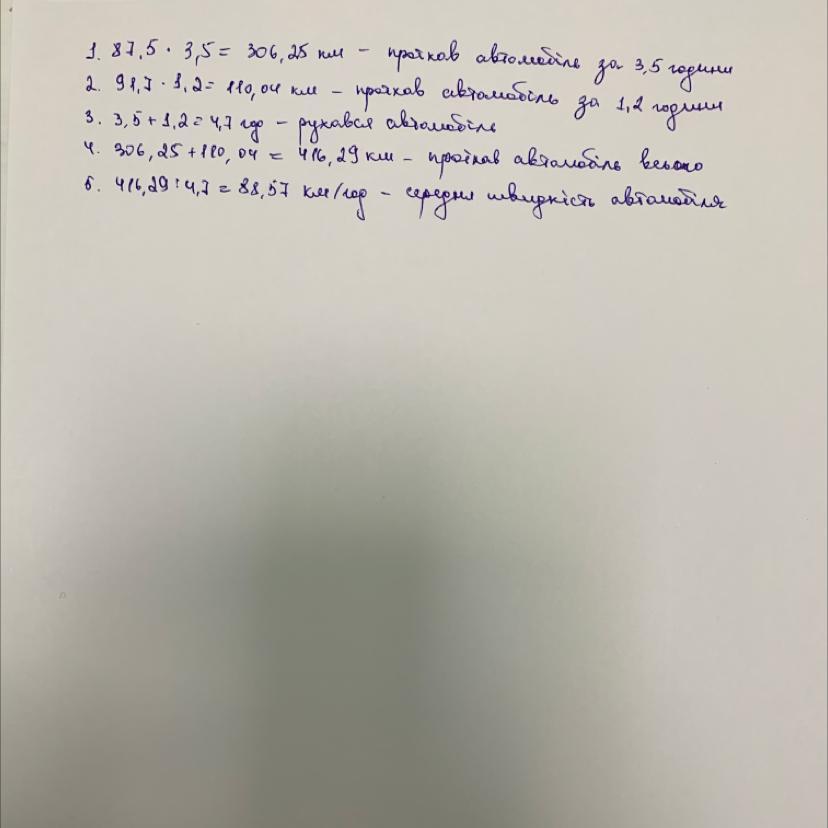 1. 87,5 · 3,5 = 306,25 км – проїхав автомобіль за 3,5 години
2. 91,7 · 1,2 = 110,04 км – проїхав автомобіль за 1,2 години
3. 3,5 + 1,2 = 4,7 год – рухався автомобіль
4. 306,25 + 110,04 = 416,29 км – проїхав автомобіль всього
5. 416,29 : 4,7 = 88,57 км/год – середня швидкість автомобіля